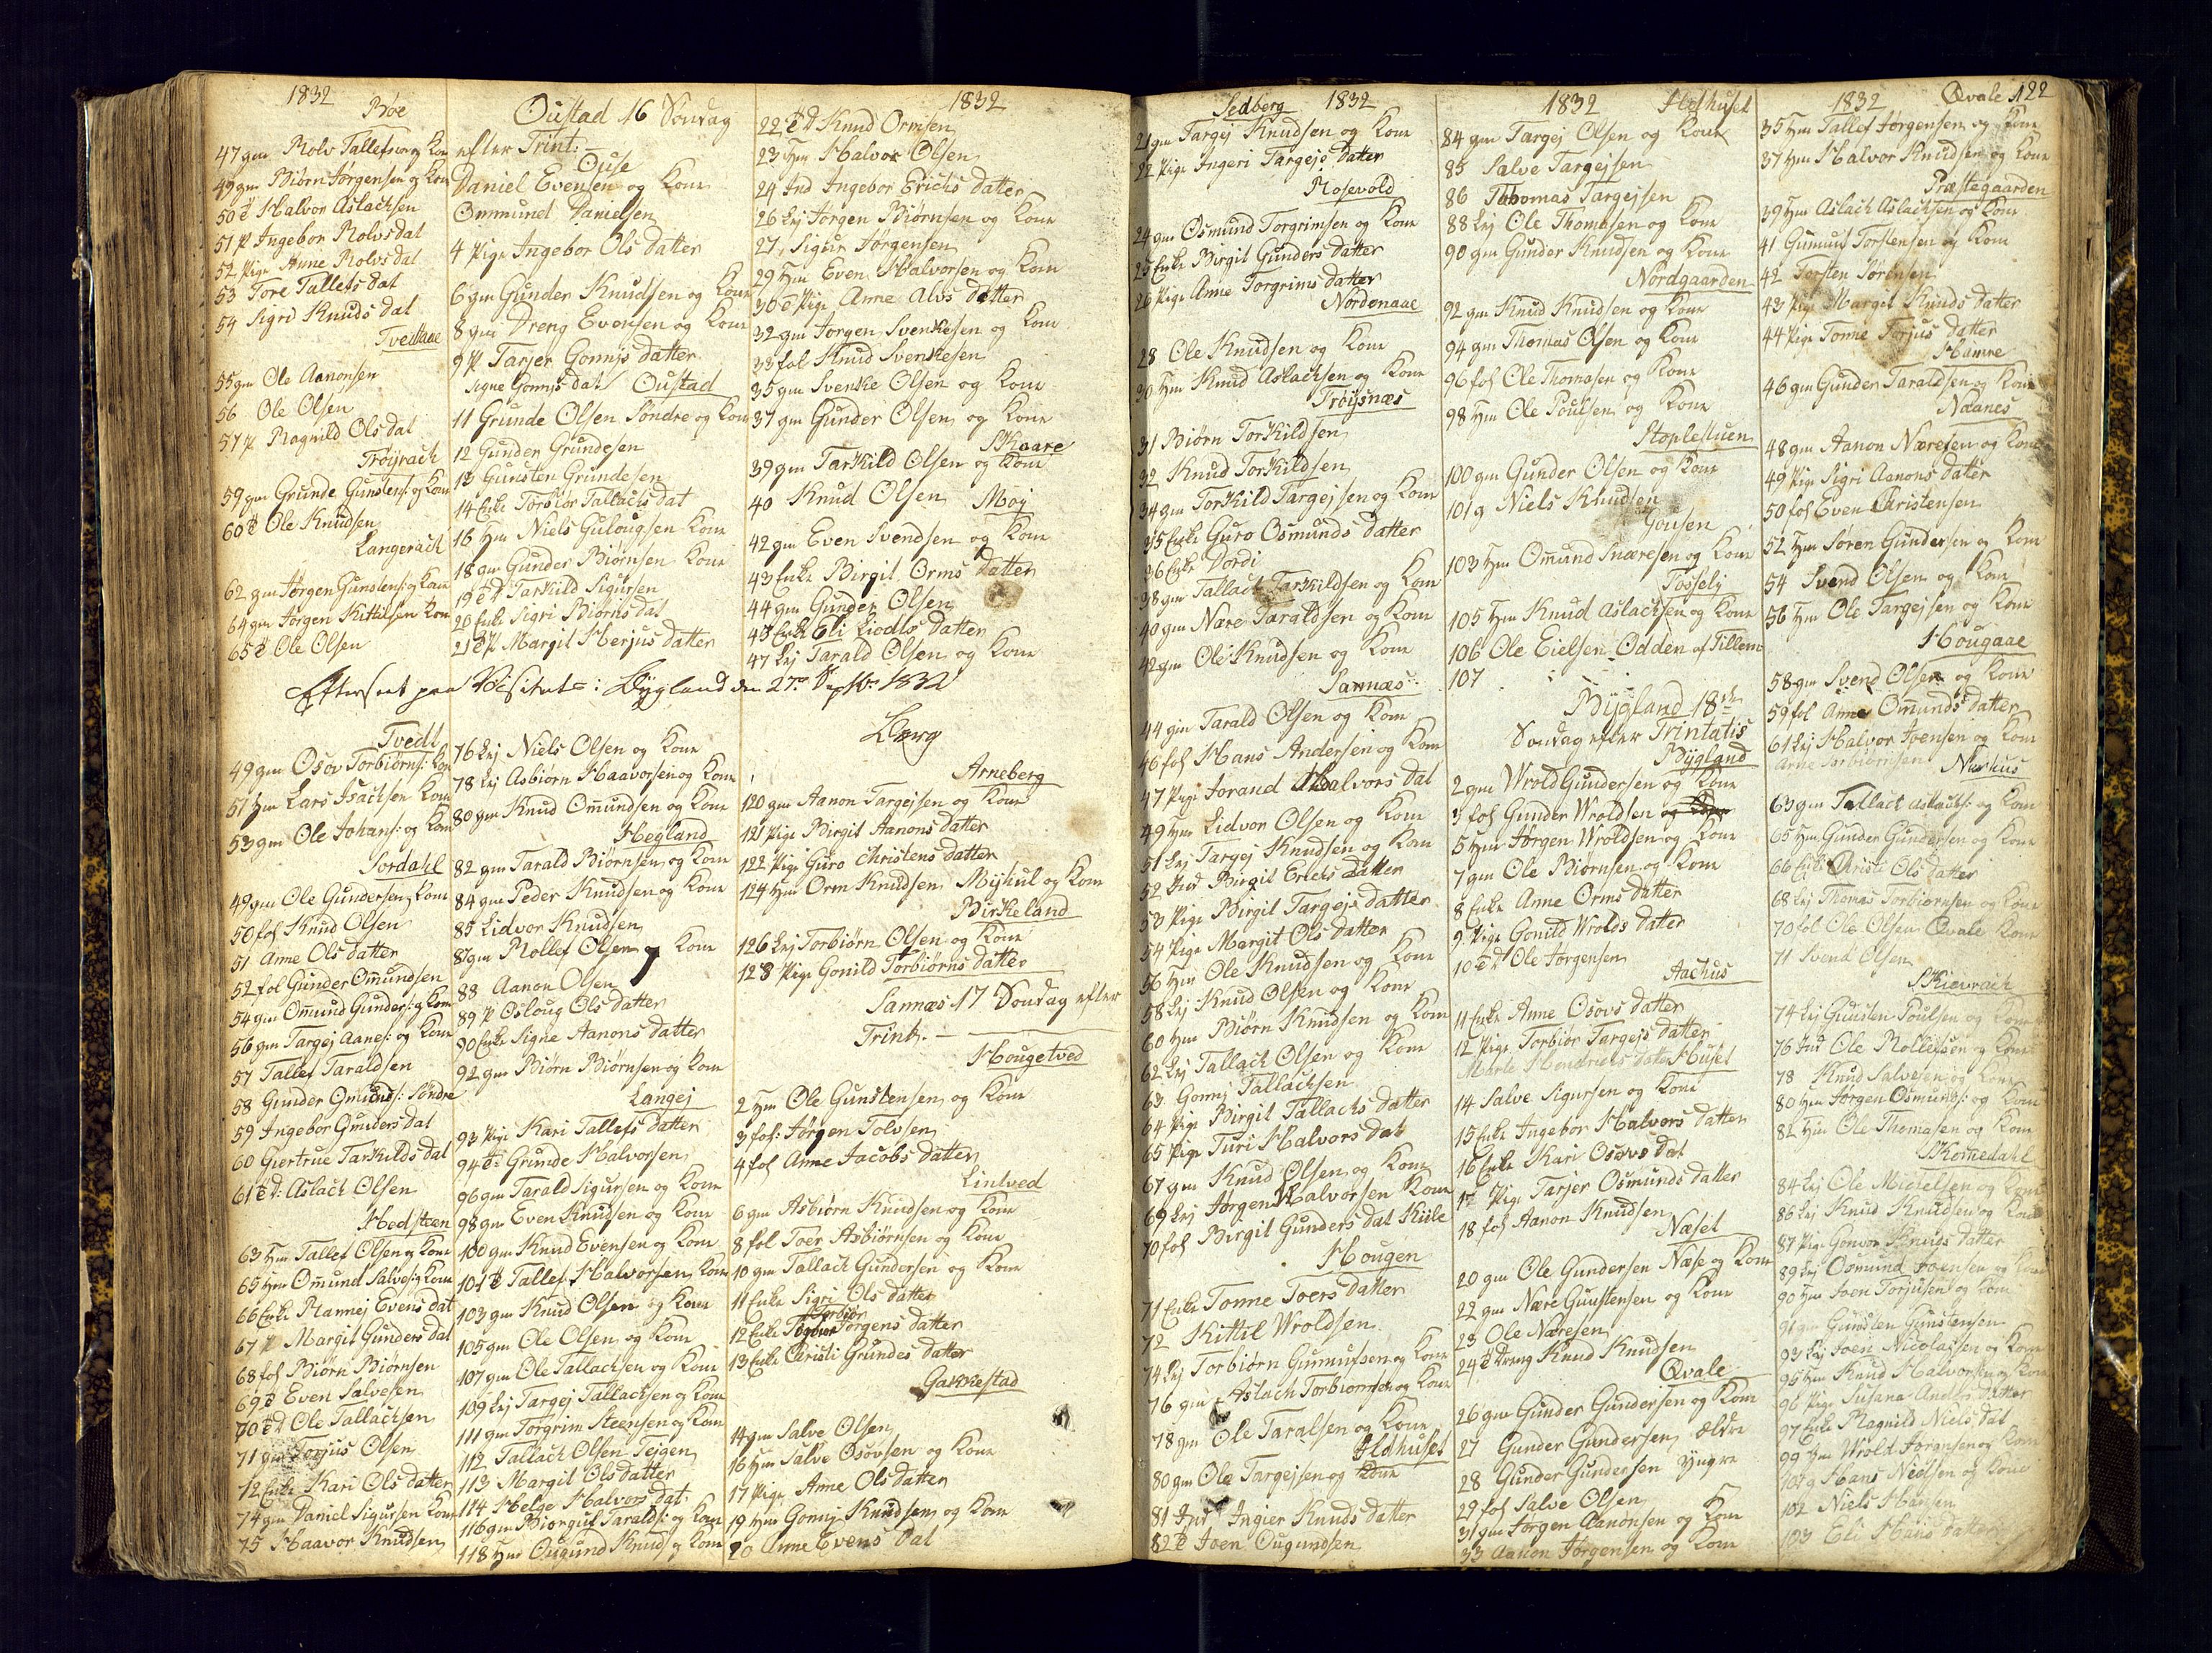 1832
Bøe
47 gm Rolv Tallefsen og Kone
49 gm Biørn Jørgensen og Kone
50 Halvor Aslachsen
51 P Ingebor Rolvs dat
52 Pige Anne Rolvs dat
53 Tore Tallefs dat
54 Sigri Knuds dat
Tveitaae
55 gm Ole Aanonsen
56 Ole Olsen
57 P Ragnild Ols dat
Trøyrach
59 gm Grunde Gunstens: og Kone
60 Ole Knudsen
Langerach
62 gm Jørgen Gunstens: og Kone
64 gm Jørgen Kittilsen Kone
65 Ole Olsen
Oustad 16 Søndag
efter Trint:
Ouse
Daniel Evensen og Kone
Ommund Danielsen
4 Pige Ingebor Ols datter
6 gm Gunder Knudsen og Kone
8 gm Dreng Evensen og Kone
9 P Tarjer Gonnjs datter
Signe Gonnjs dat Oustad
11 Grunde Olsen Søndre og Kone
12 Gunder Grundesen
13 Gunsten Grundesen
14 Enke Torbiør Tallachs dat
16 Hm Niels Gulougsen Kone
18 gm Gunder Biørnsen Kone
19 Tarkild Sigursen
20 Enke Sigri Biørns dat
21 P Margit Herjus datter
1832
22 Knud Ormsen
23 Hm Halvor Olsen
24 Ind Ingebor Erichs datter
26 Lej Jørgen Biørnsen og Kone
27 Sigur Jørgensen
29 Hm Even Halvorsen og Kone
30 Pige Anne Alvs datter
32 gm Jørgen Svenkesen og Kone
33 fol Knud Svenkesen
35 gm Svenke Olsen og Kone
37 gm Gunder Olsen og Kone
Skaare
39 gm Tarkild Olsen og Kone
40 Knud Olsen Moj
42 gm Even Svendsen og Kone
43 Enke Birgit Orms datter
44 gm Gunder Olsen
45 Enke Eli Liodls datter
47 Lej Tarald Olsen og Kone
Efterseet paa Visitats i Bygland den 27de Septbr 1832
Tvedt
49 gm Osov Torbiørns: Kone
51 Hm Lars Isachsen Kone
53 gm Ole Johans: og Kone
Jordahl
49 gm Ole Gundersen Kone
50 fol Knud Olsen
51 Anne Ols datter
52 fol Gunder Omundsen
54 gm Omund Gunders: og Kone
56 gm Targej Aanes: og Kone
57 Tallef Taraldsen
58 Gunder Omunds: Søndre
59 Ingebor Gunders dat
60 Giertrue Tarkilds dat
61 Aslach Olsen
Hedsteen
63 Hm Tallef Olsen og Kone
65 Hm Omund Salves: og Kone
66 Enke Rannej Evens dat
67 P Margit Gunders dat
68 fol Biørn Biørnsen
69 Even Salvesen
70 Ole Tallachsen
71 gm Torjus Olsen
72 Enke Kari Ols datter
74 gm Daniel Sigursen Kone
75 Haavor Knudsen
76 Lej Niels Olsen og Kone
78 Lej Asbiørn Haavorsen og Kone
80 gm Knud Omundsen og Kone
Hegland
82 gm Tarald Biørnsen og Kone
84 gm Peder Knudsen og Kone
85 Lidvor Knudsen
87 gm Rollef Olsen Kone
88 Aanon Olsen
89 P Osloug Ols datter
90 Enke Signe Aanons datter
92 gm Biørn Biørnsen og Kone
Langej
93 Pige Kari Tallefs datter
94 Grunde Halvorsen
96 gm Tarald Sigursen og Kone
98 gm Even Knudsen og Kone
100 gm Knud Evensen og Kone
101 Tallef Halvorsen Kone
103 gm Knud Olsen og Kone
105 gm Ole Olsen og Kone
107 gm Ole Tallachsen og Kone
109 Lej Targej Tallachsen og Kone
111 gm Torgrim Steensen og Kone
112 Tallach Olsen Tejgen
113 Margit Ols datter
114 Helge Halvors dat
116 gm Biørguf Taralds: og Kone
118 Hm Ougund Knuds og Kone
Berg
Arneberg
120 gm Aanon Targejsen og Kone
121 Pige Birgit Aanons datter
122 Pige Guro Christens datter
124 Hm Orm Knudsen Myhul og Kone
Birkeland
126 Lej Torbiørn Olsen og Kone
128 Pige Gonild Torbiørns datter
Sannæs 17 Søndag efter
Trint.
Hougetved
2 Hm Ole Gunstensen og Kone
3 fol: Jørgen Tolvsen
4 fol Anne Jacobs datter
Lintved
6 gm Asbiørn Knudsen og Kone
8 fol Toer Asbiørnsen og Kone
10 gm Tallach Gundersen og Kone
11 Enke Sigri Ols datter
Torbiør
12 Enke Jørgens datter
13 Enke Christi Grundes datter
Gakkestad
14 gm Salve Olsen
16 Hm Salve Osovsen og Kone
17 Pige Anne Ols datter
19 Hm Gonnj Knudsen og Kone
20 Anne Evens dat
Sedberg 1832
21 gm Targej Knudsen og Kone
22 Pige Ingeri Targejs datter
Rosevold
24 gm Osmund Torgrimsen og Kone
25 Enke Birgit Gunders datter
26 Pige Anne Torgrims datter
Nordenaae
28 Ole Knudsen og Kone
30 Hm Knud Aslachsen og Kone
Trøysnæs
31 Biørn Torkildsen
32 Knud Torkildsen
34 gm Torkild Targejsen og Kone
35 Enke Guro Osmunds datter
36 Enke Dordi
38 gm Tallach Tarkildsen og Kone
40 gm Nære Taraldsen og Kone
42 gm Ole Knudsen og Kone
Sannæs
44 gm Tarald Olsen og Kone
46 fol Hans Andersen og Kone
47 Pige Jorand Halvors dat
49 Hm Lidvor Olsen og Kone
51 Lej Targej Knudsen og Kone
52 Ind Birgit Erichs datter
53 Pige Birgit Targejs datter
54 Pige Margit Ols datter
56 Hm Ole Knudsen og Kone
58 Lej Knud Olsen og Kone
60 Hm Biørn Knudsen og Kone
62 Lej Tallach Olsen og Kone
63 Gonnj Tallachsen
64 Pige Birgit Tallachs datter
65 Pige Turi Halvors dat
67 gm Knud Olsen og Kone
69 Lej Jørgen Halvorsen Kone
70 fol Birgit Gunders dat Kiile
Hougen
71 Enke Tonne Toers datter
72 Kittil Wroldsen
74 Lej Torbiørn Gunnufsen og Kone
76 gm Aslach Torbiørnsen og Kone
78 gm Ole Taralsen og Kone
Ildhuset
80 gm Ole Targejsen og Kone
81 Ind Ingier Knuds datter
82 Joen Ougundsen
1832 Ildhuset
84 gm Targej Olsen og Kone
85 Salve Targejsen
86 Thomas Targejsen
88 Lej Ole Thomasen og Kone
90 gm Gunder Knudsen og Kone
Nordgaarden
92 gm Knud Knudsen og Kone
94 gm Thomas Olsen og Kone
96 fol Ole Thomasen og Kone
98 Hm Ole Poulsen og Kone
Stoplestuen
100 gm Gunder Olsen og Kone
101 g Niels Knudsen
Gousen
103 Hm Omund Snæresen og Kone
Fosselj
105 Hm Knud Aslachsen og Kone
106 Ole Eielsen Odden af Tillem
107
Bygland 18de
Søndag efter Trintatis
Bygland
2 gm Wrold Gundersen og Kone
3 fol Gunder Wroldsen og Kone
5 Hm Jørgen Wroldsen og Kone
7 gm Ole Biørnsen og Kone
8 Enke Anne Orms datter
9 Pige Gonild Wrolds datter
10 Ole Jørgensen
Aachus
11 Enke Anne Osovs datter
12 Pige Torbiør Targejs datter
Marte Hendrichs datter Huset
14 Salve Sigursen og Kone
15 Enke Ingebor Halvors datter
16 Enke Kari Osovs dat
17 Pige Tarjer Osmunds datter
18 fol Aanon Knudsen
Næset
20 gm Ole Gundersen Næse og Kone
22 gm Nære Gunstensen og Kone
23 Ole Næresen
24 Dreng Knud Knudsen
Qvale
26 gm Gunder Gundersen og Kone
27 Gunder Gundersen ældre
28 Gunder Gundersen yngre
29 fol Salve Olsen
31 gm Jørgen Aanonsen og Kone
33 Aanon Jørgensen og Kone
1832 Qvale 122
35 Hm Tallef Jørgensen og Kone
37 Hm Halvor Knudsen og Kone
Præstegaarden
39 Hm Aslach Aslachsen og Kone
41 Gunnuf Torstensen og Kone
42 Torsten Sørensen
43 Pige Margit Knuds datter
44 Pige Tonne Torjus datter
Hamre
46 gm Gunder Taraldsen og Kone
Næanes
48 gm Aanon Næresen og Kone
49 Pige Sigri Aanons datter
50 fol Even Christensen
52 Hm Søren Gundersen og Kone
54 Svend Olsen og Kone
56 Hm Ole Targejsen og Kone
Hougaae
58 gm Svend Olsen og Kone
59 fol Anne Omunds datter
61 Lej Halvor Joensen og Kone
Arne Torbiørnsen
63 gm Tallach Aslachs: og Kone
65 Hm Gunder Gundersen og Kone
66 Enke Christi Ols datter
68 Lej Thomas Torbiørnsen og Kone
70 fol Ole Olsen Qvale Kone
71 Svend Olsen
Skievrach
74 Lej Gunsten Poulsen og Kone
76 Ind Ole Rollefsen og Kone
78 Knud Salvesen og Kone
80 Hm Jørgen Osmunds: og Kone
82 Hm Ole Thomasen og Kone
Skomedahl
84 Lej Ole Michelsen og Kone
86 Lej Knud Knudsen og Kone
87 Pige Gonvor Knuds datter
89 Lej Osmund Joensen og Kone
90 Hm Joen Torjusen og Kone
91 gm Gunsten Gunstensen
93 Lej Joen Nicolajsen og Kone
95 Hm Knud Halvorsen og Kone
96 Pige Susana Anders datter
97 Enke Ragnild Niels dat
99 Hm Wrold Jørgensen og Kone
101 g Hans Nielsen og Kone
102 Niels Hansen
103 Eli Hans datter